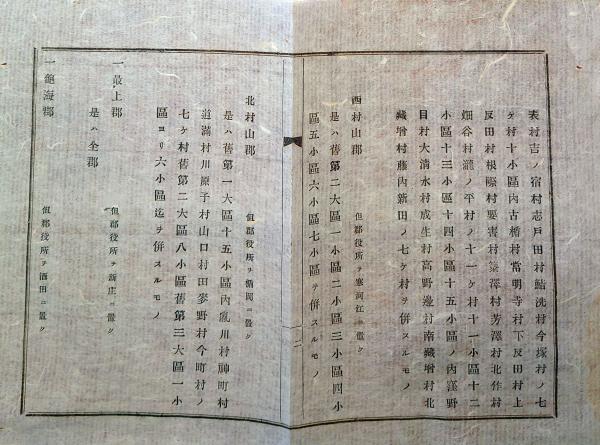 表村吉ノ宿村志戸田村鮨洗村今塚村ノ七
ケ村十小區內古楯村常明寺村下反田村上
反田村根際村要害村簗澤村芳澤村北作村
畑谷村瀧ノ平村ノ十一ケ村十一小區十二
小區十三小區十四小區十五小區ノ內窪野
目村大淸水村成生村高野邊村南藏增村北
藏增村藤內新田ノ七ケ村ヲ併スルモノ
西村山郡 但郡役所ヲ寒河江ニ置ク
是ハ舊第二大區一小區二小區三小區四小
區五小區六小區七小區ヲ併スルモノ
二
北村山郡 但郡役所ヲ楯岡ニ置ク
是ハ舊第一大區十五小區內亂川村神町村
道滿村川原子村山口村田麥野村今町村ノ
七ケ村舊第二大區八小區舊第三大區一小
區ヨリ六小區迄ヲ併スルモノ
一最上郡 但郡役所ヲ新庄ニ置ク
是ハ全郡
一飽海郡 但郡役所ヲ酒田ニ置ク